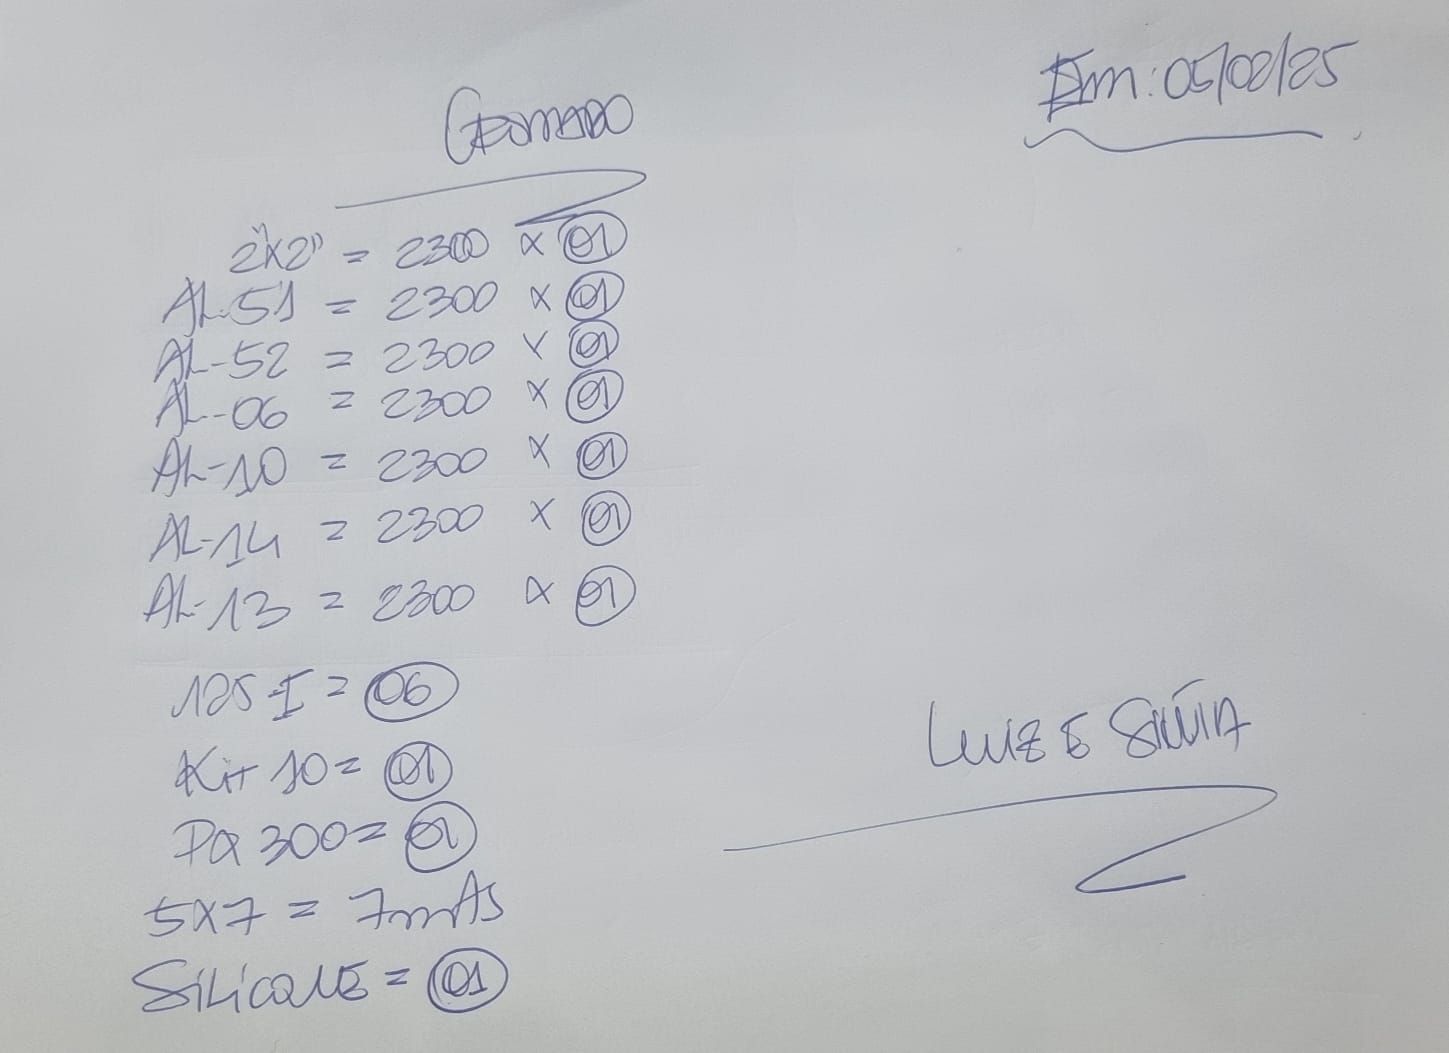 Em: 05/02/25
CROMADO
2"x2" = 2300 x 01
AL-51 = 2300 x 01
AL-52 = 2300 x 01
AL-06 = 2300 x 01
AL-10 = 2300 x 01
AL-14 = 2300 x 01
AL-13 = 2300 x 01
125-I = 06
Kit 10 = 01
PQ 300 = 01
5x7 = 7mts
SiLiCONE = 01
LUIZ E SILVIA